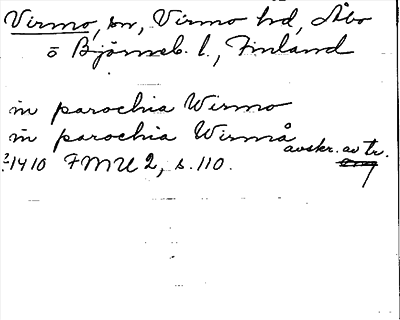 Virmo, sn, Virmo hd, Åbo
o Björneb. l., Finland
in parochia Wirmo
in parochia Wirmå
avskr. av tr.
?1410 FMU 2, s. 110.